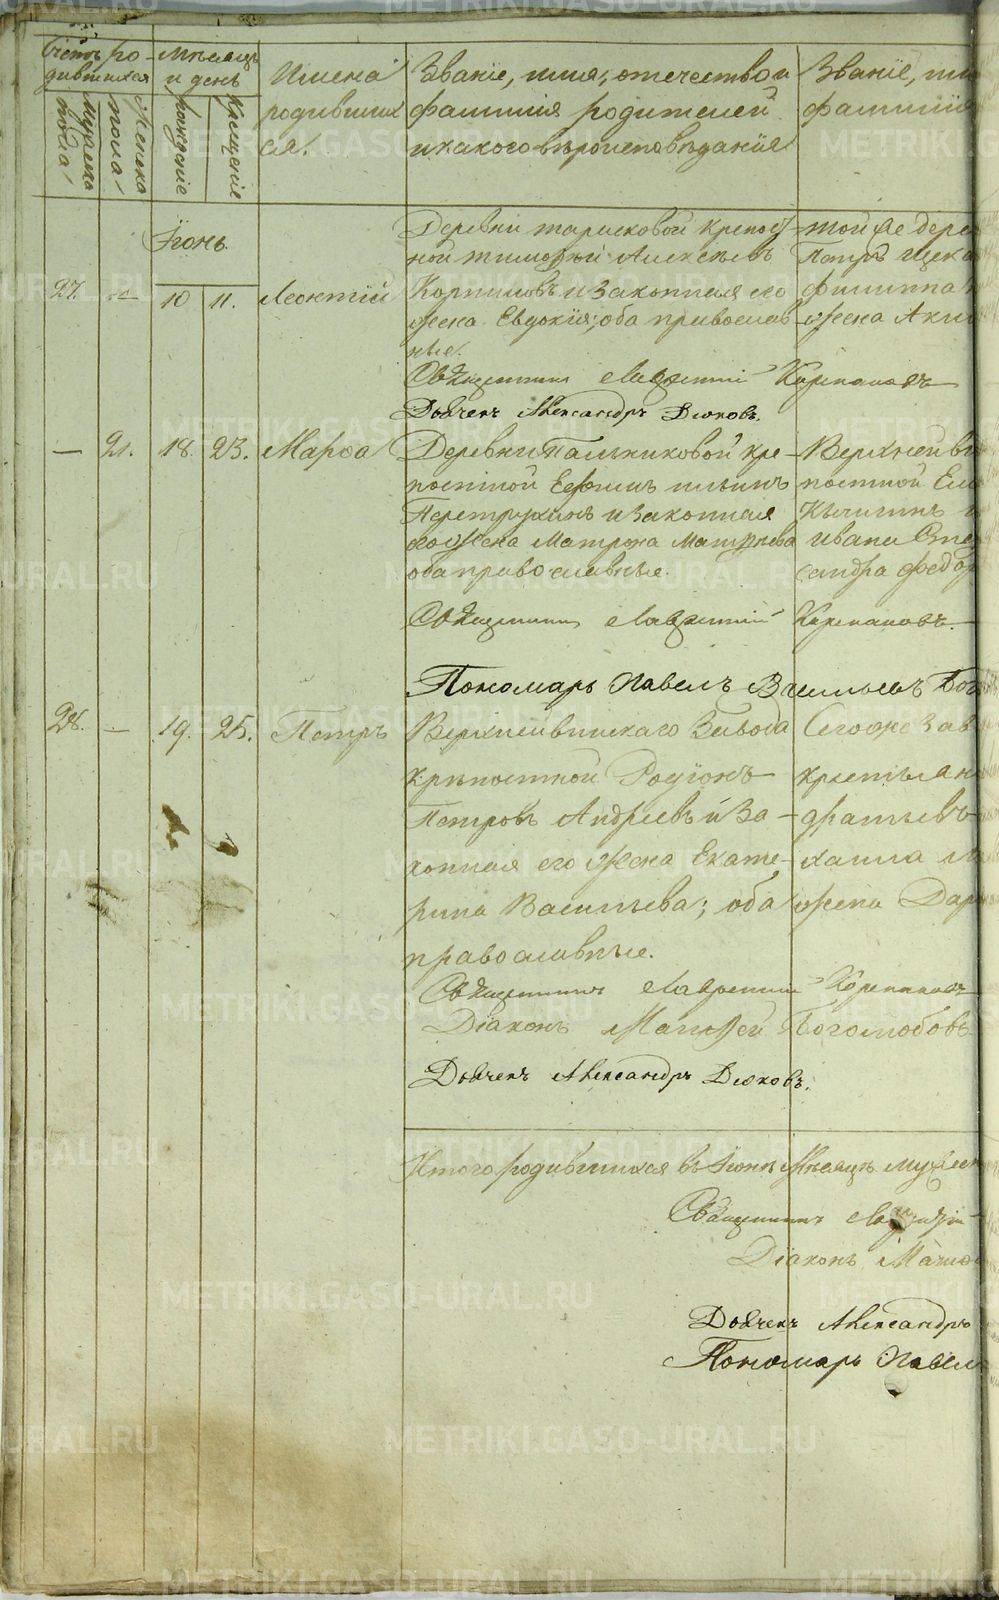 Счетъ ро-
дившихся
Мѣсяцъ
и день
Имена
родивших
ся.
Званіе, имя, отечество и
фамилія родителей
и какого вѣроисповѣданія
Званіе, им
фамилія
Мужеска
пола
Женска
пола
рожденіе
крещеніе
Іюнь.
27.
10
11.
Леонтій
Деревни Тарасковой крепост
ной Тимофей Алексѣевъ
Корниловъ и законная его
жена Евдокія; оба православ
ные.
той же дере
Петръ Щека
филиппа
жена Аки
Священникъ Лаврентій Карпановъ
Дьячекъ Александръ Дюковъ.
—
21.
18.
23.
Марфа
Деревни Пальниковой кре-
постной Ефимъ Ильинъ
Перетрухинъ и законная
его жена Матрона Матвѣева
оба православные.
Верхнейви
постной Ели
Кычигинъ и
Ивана
сандра федор
Священникъ Лаврентій Карпановъ.
Пономарь Павелъ Васильевъ Бог
28.
—
19.
25.
Петръ
Верхнейвинскаго Завода
крѣпостной Родіонъ
Петровъ Андреевъ и за-
конная его жена Екате-
рина Васильева; оба
православные.
Сегоже Зав
крестьян
дратьевъ
хаила
жена Дар
Священникъ Лаврентій Карпановъ
Діаконъ Матвей Боголюбовъ
Дьячекъ Александръ Дюковъ.
Итого родившихся въ Іюнѣ Мѣсяцѣ мужеск
Священникъ Лаврентій
Діаконъ Матве
Дьячекъ Александръ
Пономарь Павелъ
METRIKI.GASO-URAL.RU